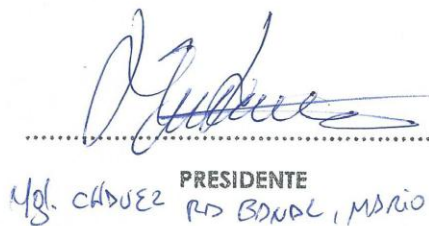 PRESIDENTE
Mgl. CHAVEZ RD BANAL, MARIO